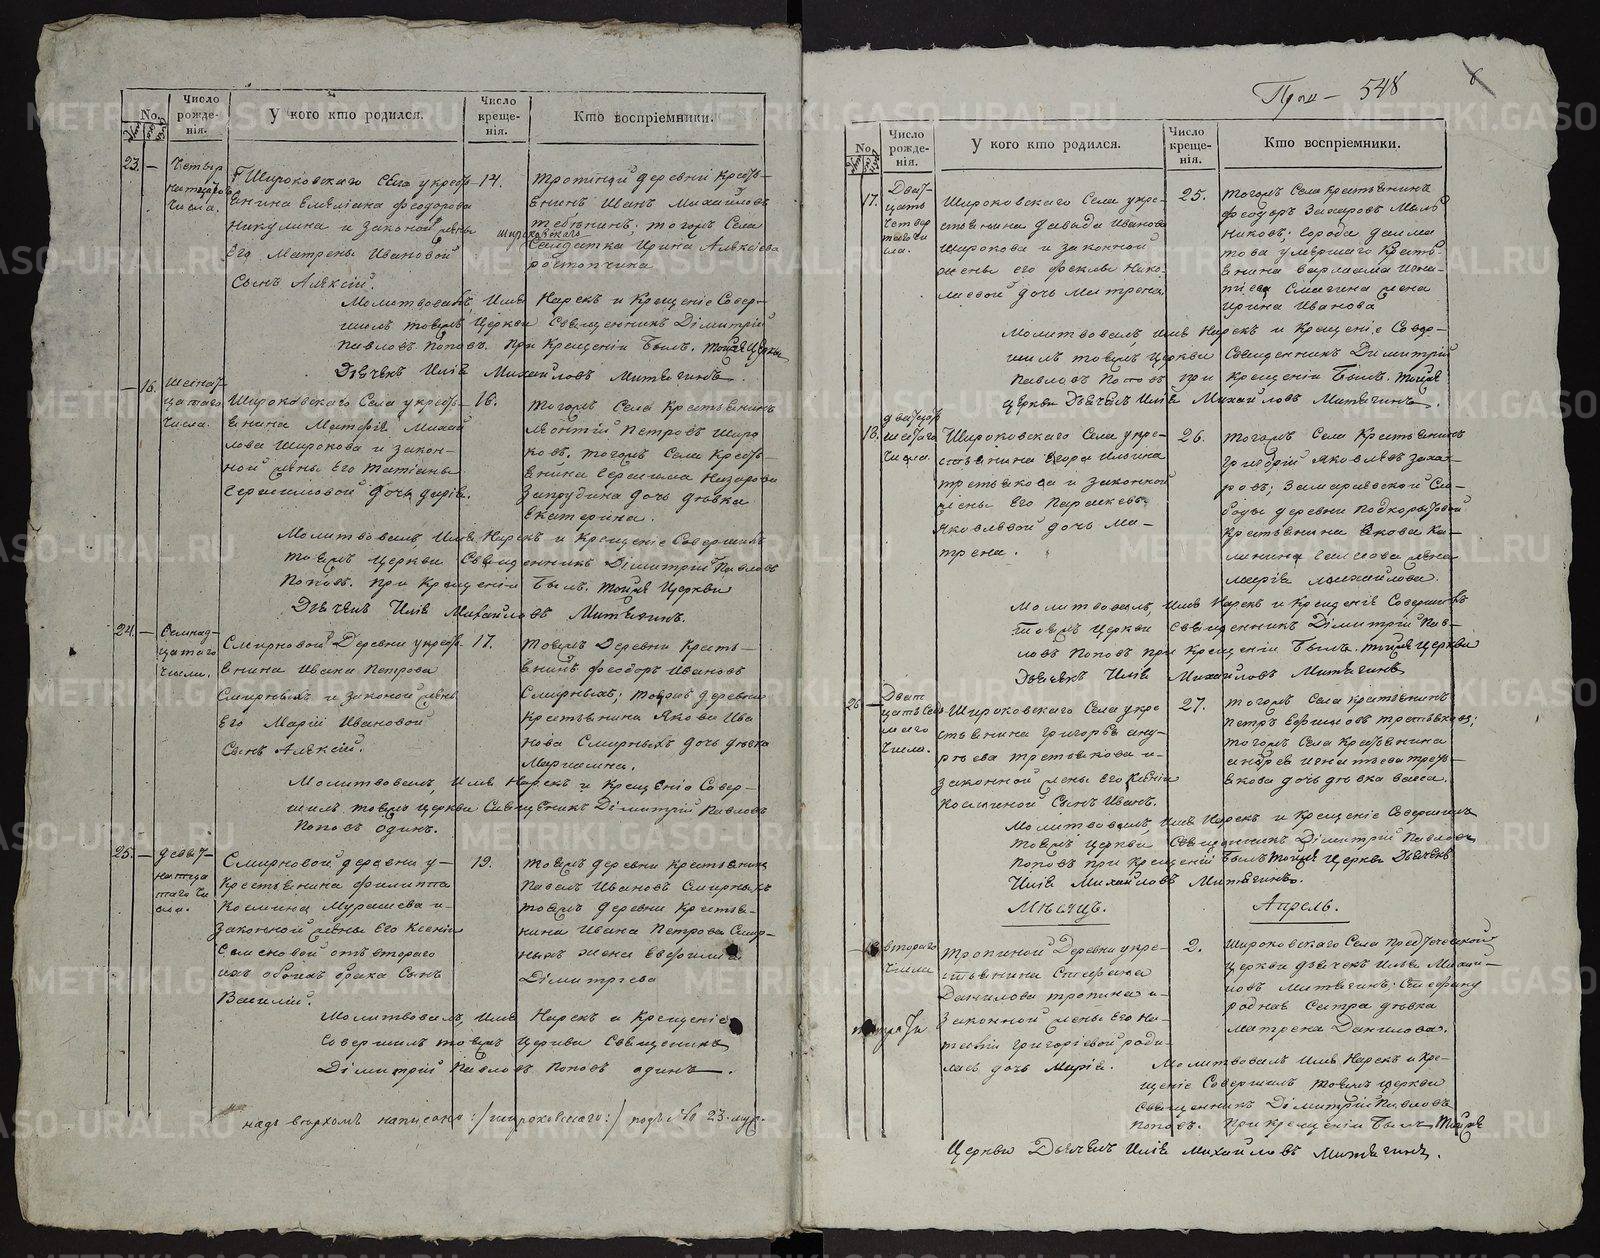 No.
Число рожденія.
У кого кто родился.
Число крещенія.
Кто воспріемники.
23. —
Четыр
числа.
Широковскаго Села у крест-
янина Емеліана Феодорова
Никулина и законной жены
Его Матрены Ивановой
Сынъ Алексій.
14.
Тропиной деревни Крестъ-
янинъ Иванъ Михайловъ
тогожъ Села
широковскаго
Солдатка Ирина Алексеева
Молитвовалъ, Имя Нарекъ и Крещеніе Совер-
шилъ тоежъ Церкви Священникъ Димитрій
Павловъ Поповъ. При Крещеніи Былъ. Тойже Церкви
Дьячекъ Илія Михайловъ Митягинъ.
— 16.
числа.
Широковскаго Села у крест-
янина Матфія Михай
лова Широкова и закон-
ной жены Его Татіаны
Герасимовой дочь Дарія.
16.
тогожъ Села Крестьянинъ
Леонтій Петровъ Широ
ковъ. тогожъ Села Кресть-
янина Герасима Назарова
Запрудина дочь дѣвка
Екатерина.
Молитвовалъ, Имя Нарекъ и Крещеніе Совершилъ
тоежъ Церкви Священникъ Димитрій Павловъ
Поповъ. При Крещеніи Былъ. Тойже Церкви
Дьячекъ Илія Михайловъ Митягинъ.
24. —
Семнад-
цатаго
числа.
Смирновой Деревни у крест-
янина Ивана Петрова
Смирныхъ и законой жены
Его Маріи Ивановой
Сынъ Алексій.
17.
тоежъ Деревни Кресть-
янинъ Феодоръ Ивановъ
Смирныхъ; тоежъ деревни
Крестьянина Якова Ива
нова Смирныхъ дочь дѣвка
Маріамна.
Молитвовалъ, Имя Нарекъ и Крещеніе Совер-
шилъ тоежъ церкви Священникъ Димитрій Павловъ
Поповъ одинъ.
25. —
Смирновой деревни у-
крестьянина Филиппа
Космина Мурашева и-
законной жены Его Ксеніи
Семеновой отъ втораго
ихъ обоихъ брака Сынъ
Василій.
19.
тоежъ деревни Крестьянинъ
Павелъ Ивановъ Смирныхъ
тоежъ деревни Крестья-
нина Ивана Петрова Смир-
ныхъ жена Евфимія
Димитріева
Молитвовалъ, Имя Нарекъ и Крещеніе
Совершилъ тоежъ Церкви Священникъ
Димитрій Павловъ Поповъ одинъ.
надъ верхомъ написано :/широковскаго:/ подъ № 23-
548
No.
Число рожденія.
У кого кто родился.
Число крещенія.
Кто воспріемники.
17.
Двад-
цать
четвер
таго чи
сла.
Широковскаго Села у кре-
стьянина Давыда Иванова
Широкова и законной
жены его Феклы Нико-
лаевой дочь Матрена
25.
тогожъ Села Крестьянинъ
Феодоръ Захаровъ Мыль
никовъ; города Далма
това умершаго Кресть-
янина Варлаама Игна-
тіева Смагина жена
Ирина Иванова
Молитвовалъ, имя Нарекъ и Крещеніе Совер-
шилъ тоежъ Церкви Священникъ Димитрій
Павловъ Поповъ при крещеніи Былъ. тойже
церкви Дьячекъ Илія Михайловъ Митягинъ.
18.
числа.
Широковскаго Села у кре-
стьянина Егора Ильина
третьякова и законной
жены Его Параскевы
Яковлевой дочь Ма-
трена.
26.
тогожъ Села Крестьянинъ
Григорій Яковлевъ Заха-
ровъ; Замараевской Сло-
боды деревни Подкорытовой
Крестьянина Якова Ка-
линина жена
Марія Михайлова.
Молитвовалъ, Имя Нарекъ и Крещеніе Совершилъ
Тоежъ Церкви Священникъ Димитрій Пав-
ловъ Поповъ при Крещеніи Былъ. тойже Церкви
Дьячекъ Илія Михайловъ Митягинъ
26 —
Двад
цать Седь
маго
числа.
Широковскаго Села у кре
стьянина Григорья Анд-
рѣева третьякова и-
законной жены Его Ксеніи
Косминой Сынъ Иванъ.
27.
тогожъ Села Крестьянинъ
Петръ Ефимовъ третьяковъ;
тогожъ Села Крестьянина
Андрея Игнатьева треть-
якова дочь дѣвка Васса.
Молитвовалъ, Имя Нарекъ и Крещеніе Совершилъ
тоежъ церкви Священникъ Димитрій Павловъ
Поповъ при Крещеніи Былъ тойже Церкви Дьячекъ
Илія Михайловъ Митягинъ.
Мѣсяцъ. Апрель.
втораго
числа
Тропиной Деревни у кре-
стьянина Стефана
Данилова Тропина и-
законной жены Его На-
таліи Григоріевой роди-
лась дочь Марія.
2.
Широковскаго Села Предтеческой
Церкви дьячекъ Илія Михай-
ловъ Митягинъ; Стефану
родная Сестра дѣвка
Матрена Данилова.
Молитвовалъ Имя Нарекъ и Кре-
щеніе Совершилъ тоежъ церкви
Священникъ Димитрій Павловъ
Поповъ. При Крещеніи Былъ тойже
Церкви Дьячекъ Илія Михайловъ Митягинъ.
METRIKI.GASO-URAL.RU